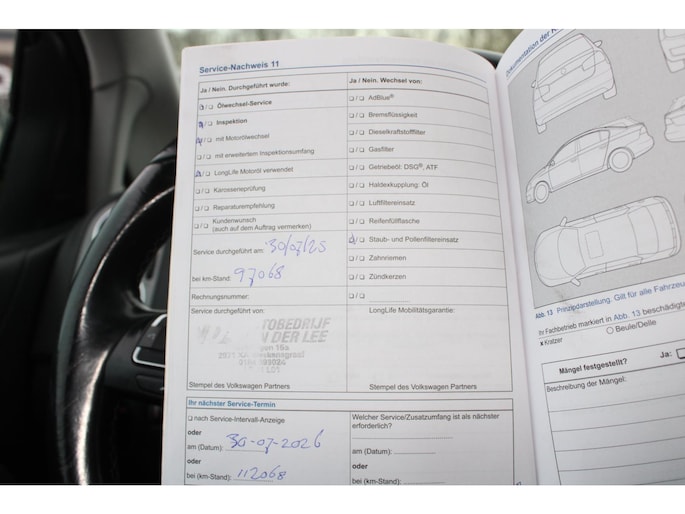 Service-Nachweis 11
Ja / Nein. Durchgeführt wurde:
❏/❏ Ölwechsel-Service
❏/❏ Inspektion
❏/❏ mit Motorölwechsel
❏/❏ mit erweitertem Inspektionsumfang
❏/❏ LongLife Motoröl verwendet
❏/❏ Karosserieprüfung
❏/❏ Reparaturempfehlung
❏/❏ Kundenwunsch
(auch auf dem Auftrag vermerken)
Service durchgeführt am: 30/07/25
bei km-Stand: 97068
Rechnungsnummer:
Service durchgeführt von:
TOBEDRIJF
N DER LEE
Stempel des Volkswagen Partners
Ja / Nein. Wechsel von:
❏/❏ AdBlue®
❏/❏ Bremsflüssigkeit
❏/❏ Dieselkraftstofffilter
❏/❏ Gasfilter
❏/❏ Getriebeöl: DSG®, ATF
❏/❏ Haldexkupplung, Öl
❏/❏ Luftfiltereinsatz
❏/❏ Reifenfüllflasche
❏/❏ Staub- und Pollenfiltereinsatz
❏/❏ Zahnriemen
❏/❏ Zündkerzen
❏/❏
LongLife Mobilitätsgarantie:
Stempel des Volkswagen Partners
Ihr nächster Service-Termin
❏ nach Service-Intervall-Anzeige
oder
am (Datum): 30-07-2026
oder
bei (km-Stand): 112068
Welcher Service/Zusatzumfang ist als nächster
erforderlich?
am (Datum):
oder
bei (km-Stand):
Dokumentation der
Abb. 13 Prinzipdarstellung. Gilt für alle Fahrzeu
Ihr Fachbetrieb markiert in Abb. 13 beschädigte
x Kratzer ○ Beule/Delle
Mängel festgestellt? Ja: ❏
Beschreibung der Mängel: